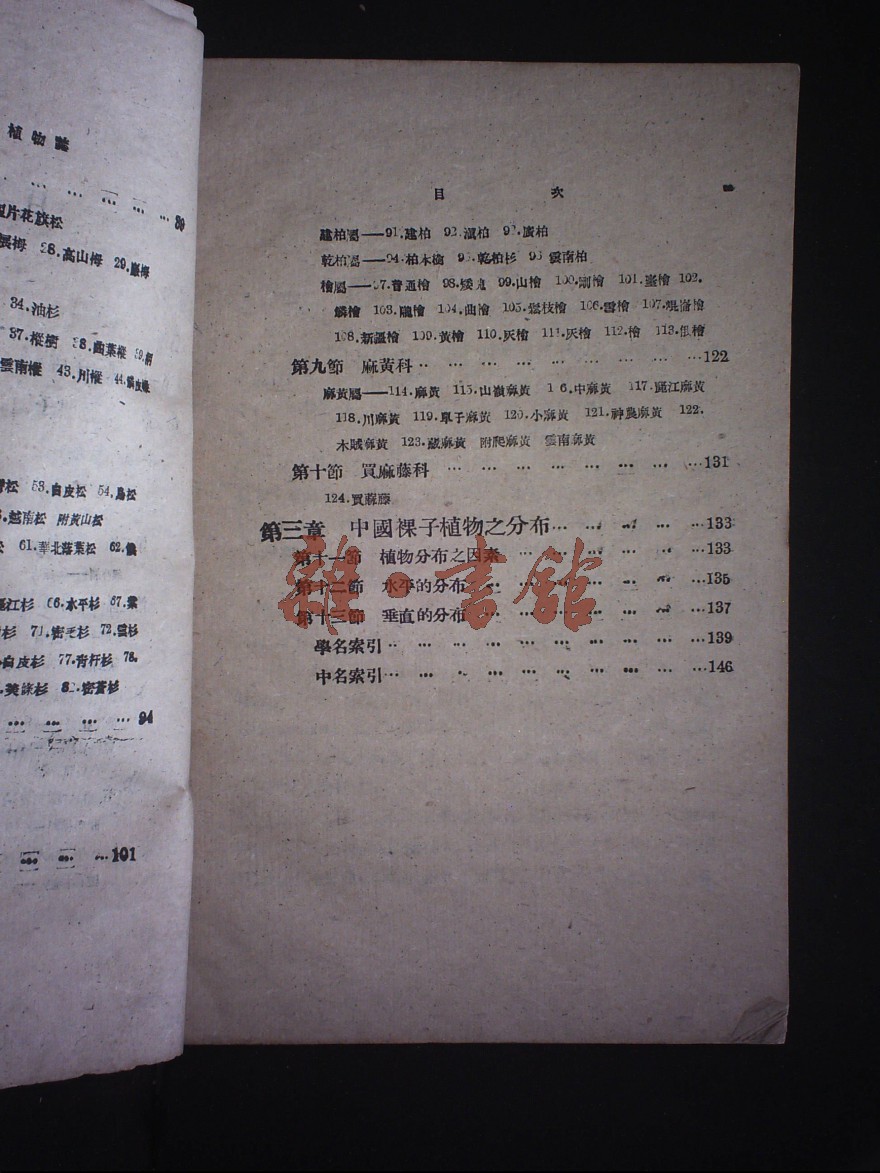 植物誌
… … … … … … 89
片花旗松
28.高山栂 29.
34.油杉
37.樅樹 38.曲葉樅
雲南樅 43.川樅 44.
松 53.白皮松 54.
越南松 附黃山松
61.華北落葉松 62.
江杉 66.水平杉 67.
杉 71.密毛杉 72.雲杉
白皮杉 77.青杆杉 78.
美誅杉 82.密蒼杉
… … … … 94
… … …101
目 次
建柏屬——91.建柏 92.滇柏 93.廣柏
乾柏屬——94.柏木檜 95.乾柏杉 96.雲南柏
檜屬——97.普通檜 98.矮丸 99.山檜 100.剛檜 101.峯檜 102.
鱗檜 103.隴檜 104.曲檜 105.鬆枝檜 106.雪檜 107.崐崙檜
108.新疆檜 109.黃檜 110.灰檜 111.灰檜 112.檜 113.偃檜
第九節 麻黃科‥ … … … … … … … …122
麻黃屬——114.麻黃 115.山嶺麻黃 116.中麻黃 117.麗江麻黃
118.川麻黃 119.單子麻黃 120.小麻黃 121.神農麻黃 122.
木賊麻黃 123.藏麻黃 附爬麻黃 雲南麻黃
第十節 買麻藤科 … … … … … … … …131
124.買麻藤
第三章 中國裸子植物之分布… … … … …133
第十一節 植物分布之因素… … … … … …133
第十二節 水平的分布… … … … … … … 135
第十三節 垂直的分布… … … … … … … 137
學名索引‥ … … … … … … … … …139
中名索引… … … … … … … … … …146
雜·書館